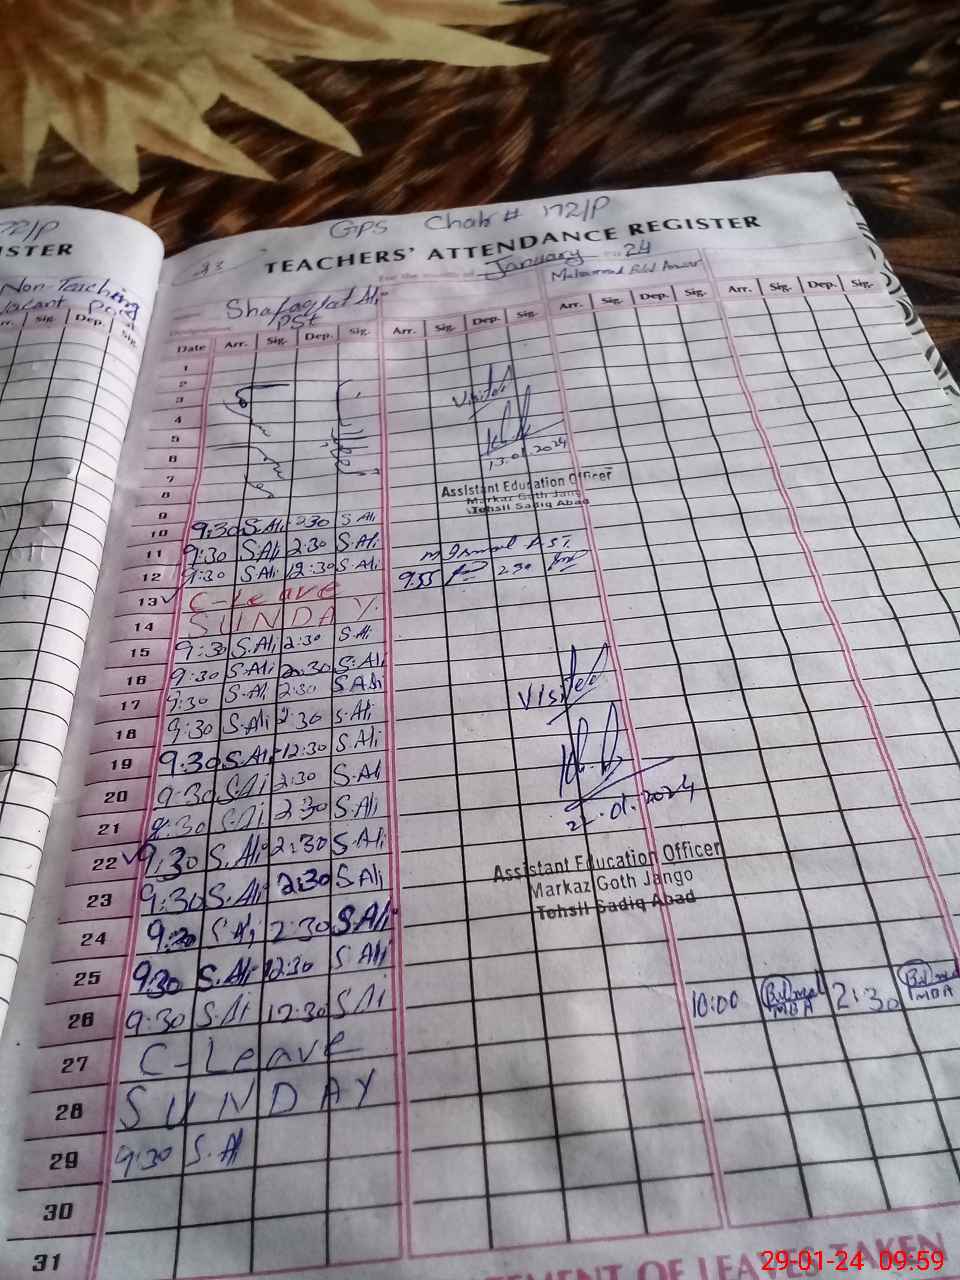 72/P
ISTER
Non-Teaching
Vacant Post
Arr. Sig. Dep. Sig.
GPS Chak # 172/P
TEACHERS' ATTENDANCE REGISTER
For the month of January 24
Shafaqat Ali
PST
Date Arr. Sig. Dep. Sig. Arr. Sig. Dep. Sig. Arr. Sig. Dep. Sig. Arr. Sig. Dep. Sig.
1
2
3
4
5
6
7
8
9
Visited
13.01.2024
Assistant Education Officer
Markaz Goth Jango
Tehsil Sadiq Abad
10 9:30 S.Ali 2:30 S Ali
11 9:30 S Ali 2:30 S.Ali
12 9:30 S Ali 12:30 S.Ali 9:55 2:30
13 C-Leave
14 SUNDAY
15 9:30 S.Ali 2:30 S.Ali
16 9:30 S.Ali 2:30 S.Ali
17 9:30 S.Ali 2:30 S Ali
18 9:30 S.Ali 2:30 S.Ali
19 9:30 S.Ali 12:30 S.Ali
20 9:30 S.Ali 2:30 S.Ali
21 9:30 S.Ali 2:30 S.Ali
22 9:30 S.Ali 2:30 S.Ali
23 9:30 S.Ali 2:30 S Ali
24 9:30 S.Ali 2:30 S.Ali
25 9:30 S.Ali 12:30 S Ali
26 9:30 S.Ali 12:30 S Ali 10:00 MBA 2:30 MBA
27 C-Leave
28 SUNDAY
29 9:30 S.Al
30
31
Visited
22.01.2024
Assistant Education Officer
Markaz Goth Jango
Tehsil Sadiq Abad
OF LEAVES TAKEN
29-01-24 09:59